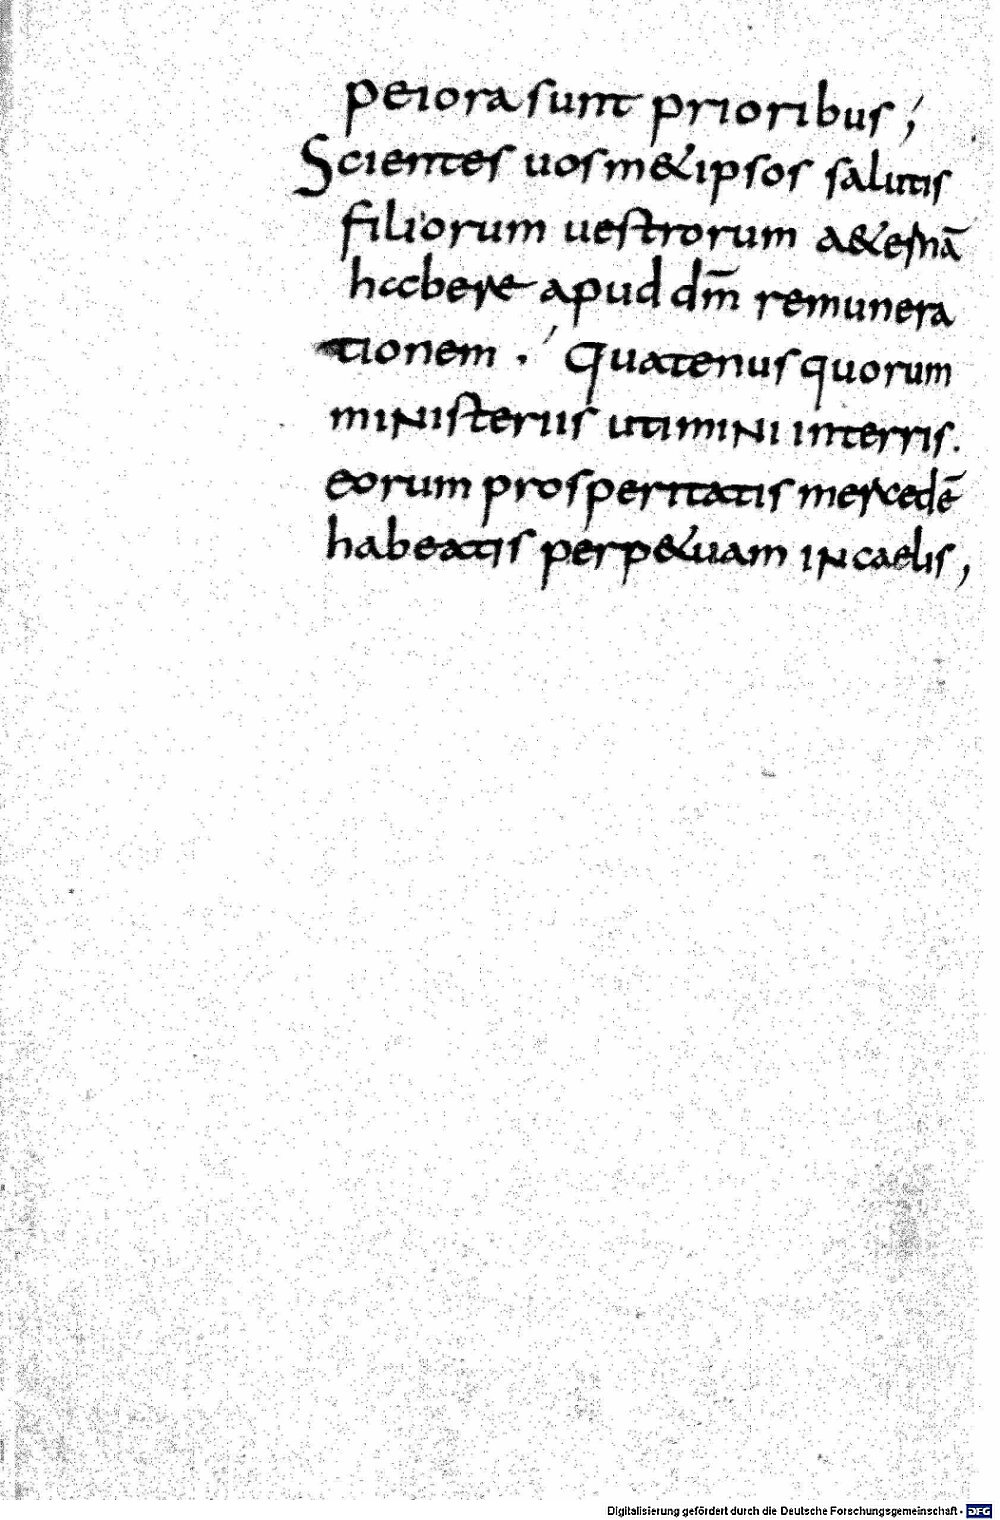 peiora sunt prioribus;
Scientes uos m&ipsos salutis
filiorum uestrorum a&ernā
habere apud dm̄ remunera
tionem. Quatenus quorum
ministeriis utimini interris.
eorum prosperitatis mercedē
habeatis perp&uam incaelis,
Digitalisierung gefördert durch die Deutsche Forschungsgemeinschaft - DFG